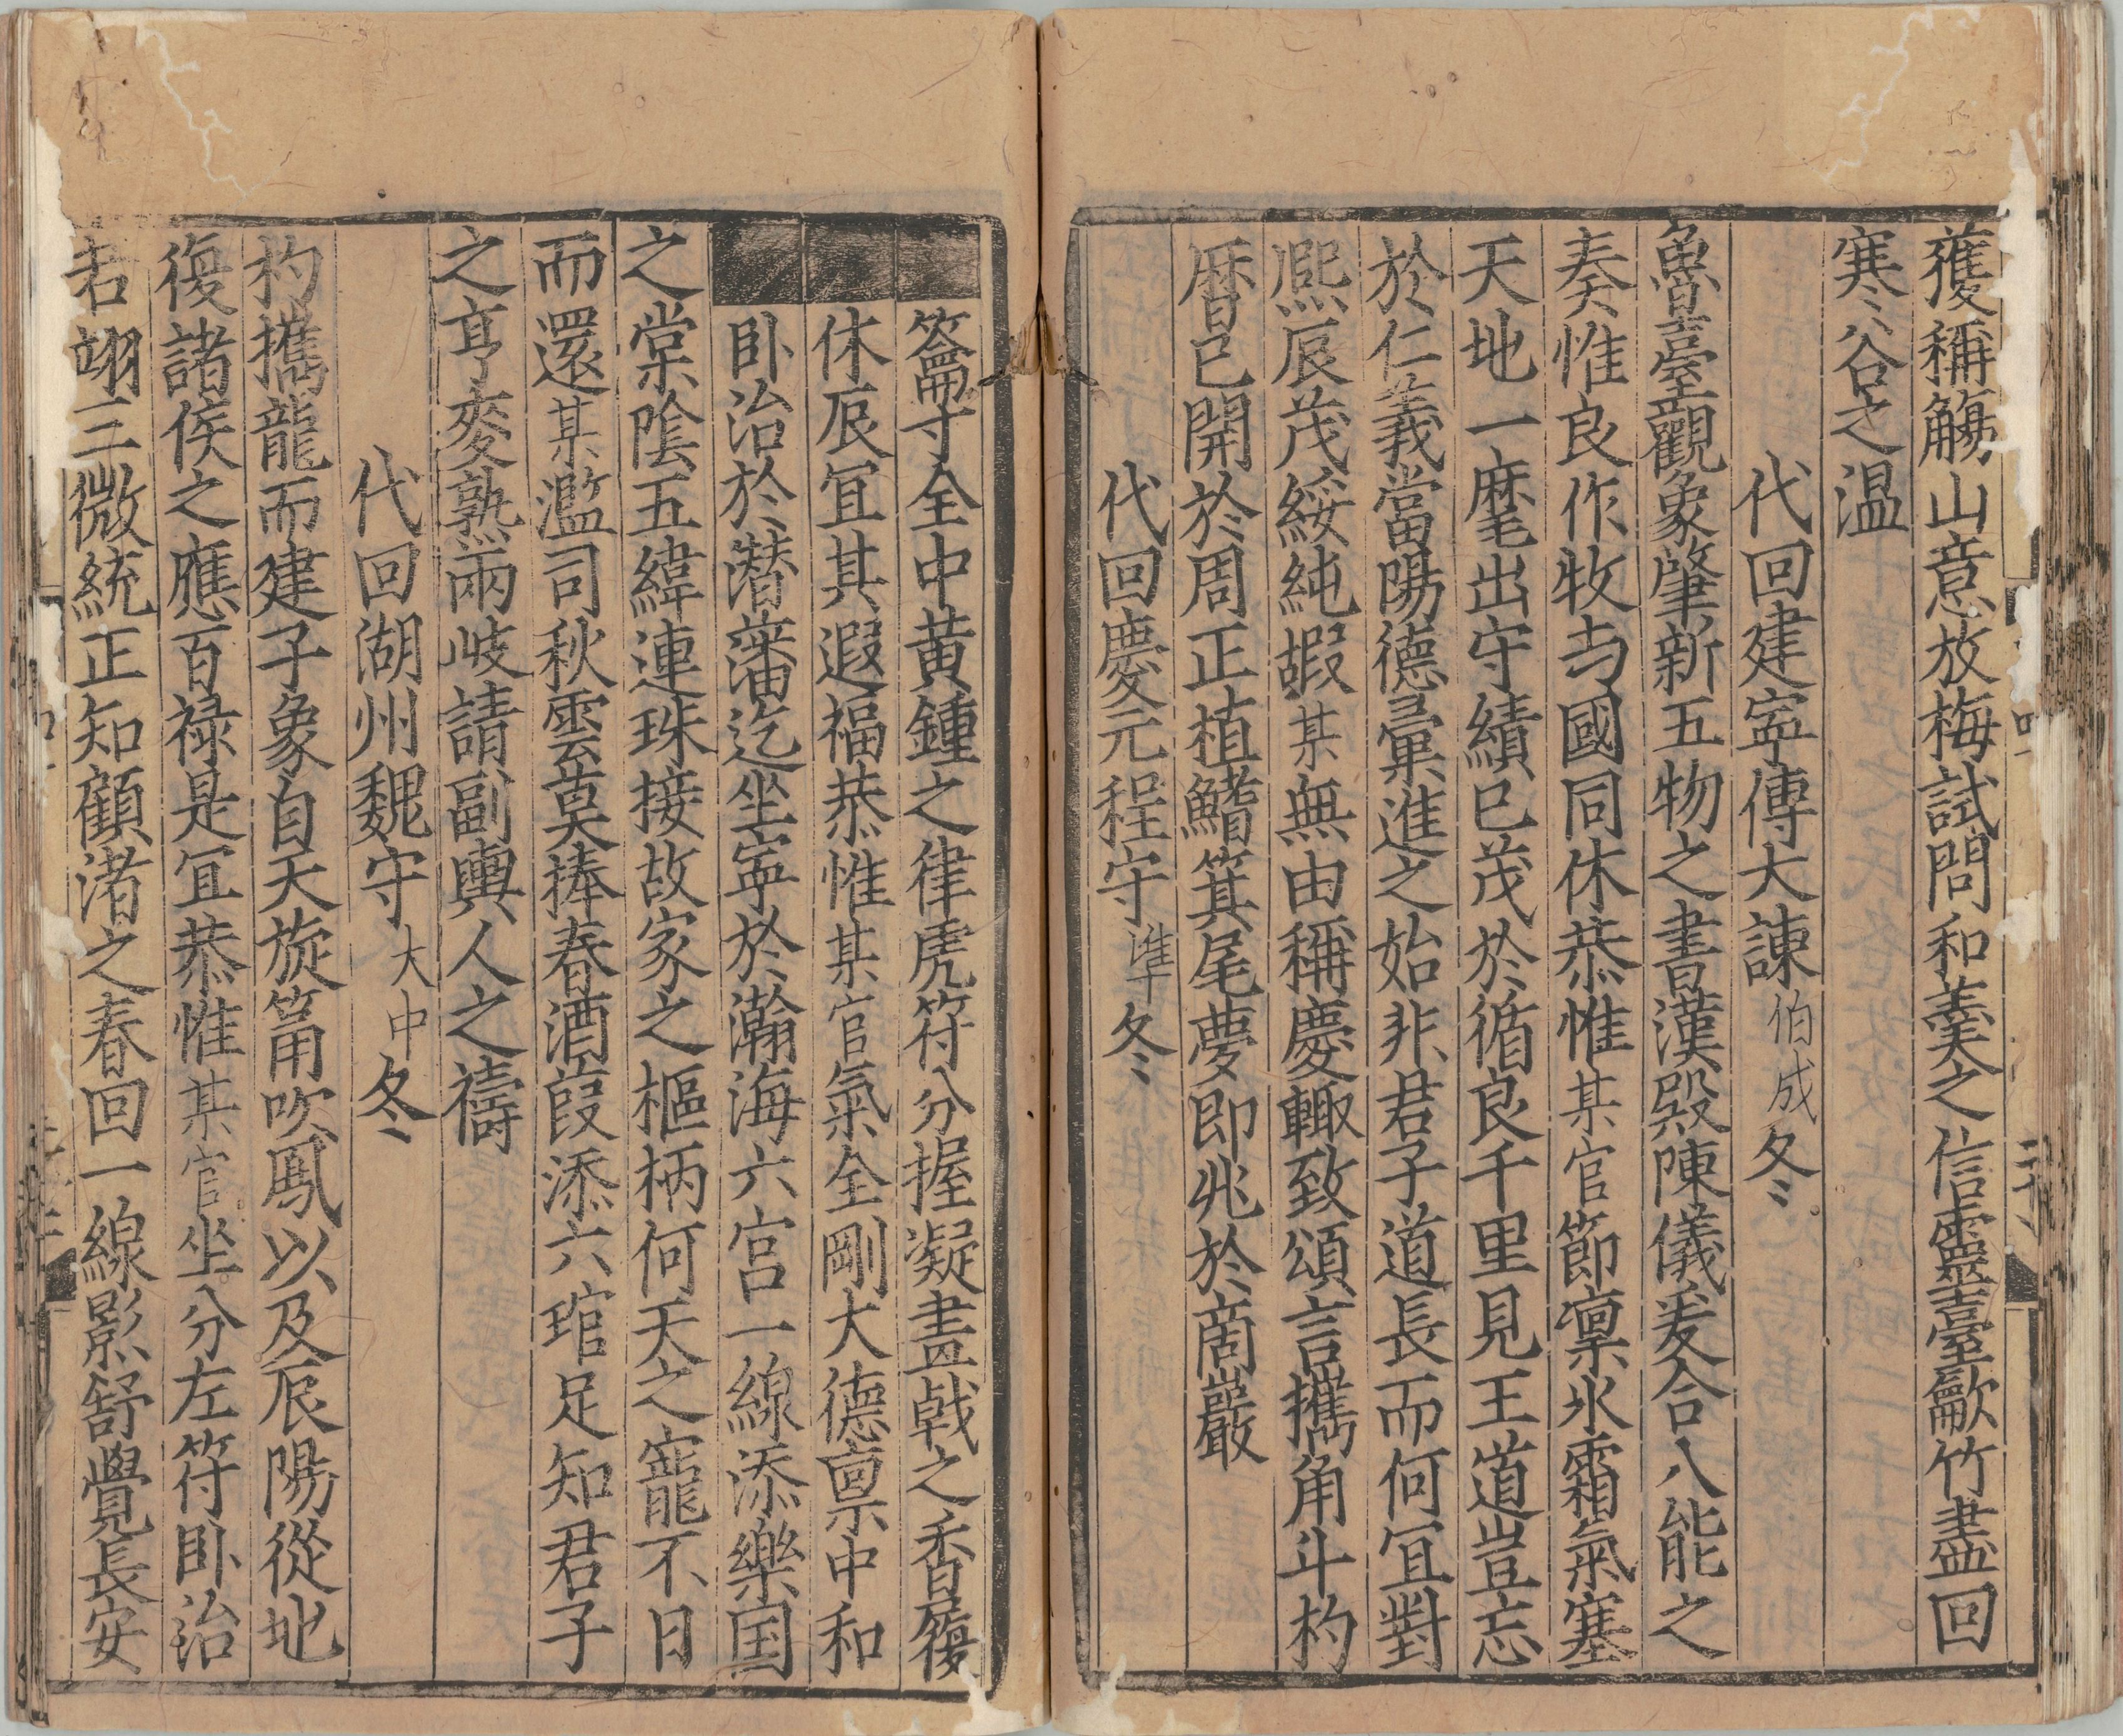 蒦稱觴山意放梅試問和羹之信靈臺歗竹盡回
寒谷之温
代回建寍傳大諫伯成冬
魯臺觀象肇新五物之書漢殿陳儀爰合八能之
奏惟良作牧与國同休恭惟某官節凛氷霜氣塞
天地一麾出守績已茂於循良千里見王道豈忘
於仁義當陽德彙進之始非君子道長而何冝對
熈辰茂綏純嘏某無由稱慶輙致頌言擕角斗杓
曆已開於周正植鰭箕尾夢即兆於啇巖
代回慶元程守準冬
籥寸全中黄鍾之律虎符分握凝晝戟之香履
休辰冝其遐福恭惟某官氣全剛大德禀中和
卧治於潜藩迄坐寍於瀚海六宫一線添樂国
之棠隂五緯連珠接故家之樞柄何天之寵不日
而還某濫司秋雲莫捧春酒葭添六琯足知君子
之亨麥熟兩岐請副輿人之禱
代回湖州魏守大中冬
杓擕龍而建子象自天旋筩吹鳳以及辰陽從地
復諸侯之應百禄是冝恭惟某官坐分左符卧治
右翊三微統正知顧渚之春回一線影舒覺長安